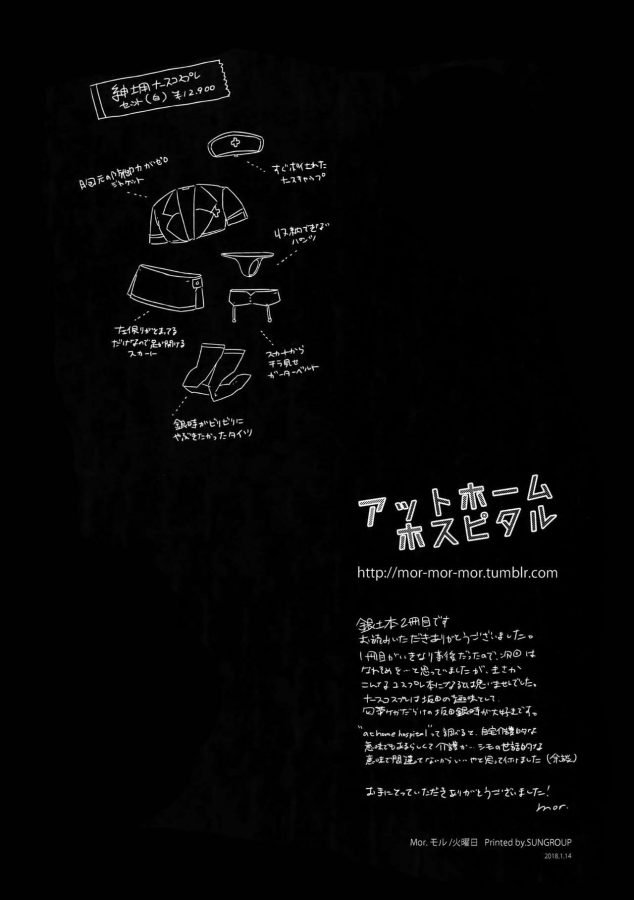 紳士用ナースコスプレ
セット(白) ¥12,900
すぐポイされた
ナースキャップ
胸元の防御力がゼロ
ジャケット
収納できない
パンツ
左側りがとまってる
だけなので足が開ける
スカート
スカートから
チラ見せ
ガーターベルト
銀時がビリビリに
やぶきたかったタイツ
アットホーム
ホスピタル
http://mor-mor-mor.tumblr.com
銀土本2冊目です
お読みいただきありがとうございました。
1冊目がいきなり事後だったので、次回は
なれそめを…と思っていましたが、まさか
こんなコスプレ本になるとは思いませんでした。
ナースコスプレは坂田の趣味として、
包帯ケガだらけの坂田銀時が大好きです。
"at home hospital"って調べると、自宅介護的な
意味でもあるらしくて介護か…シモの世話的な
意味で間違ってないからいいやと思って付けました(余談)
お手にとっていただきありがとうございました!
mor.
Mor. モル/火曜日 Printed by.SUNGROUP
2018.1.14